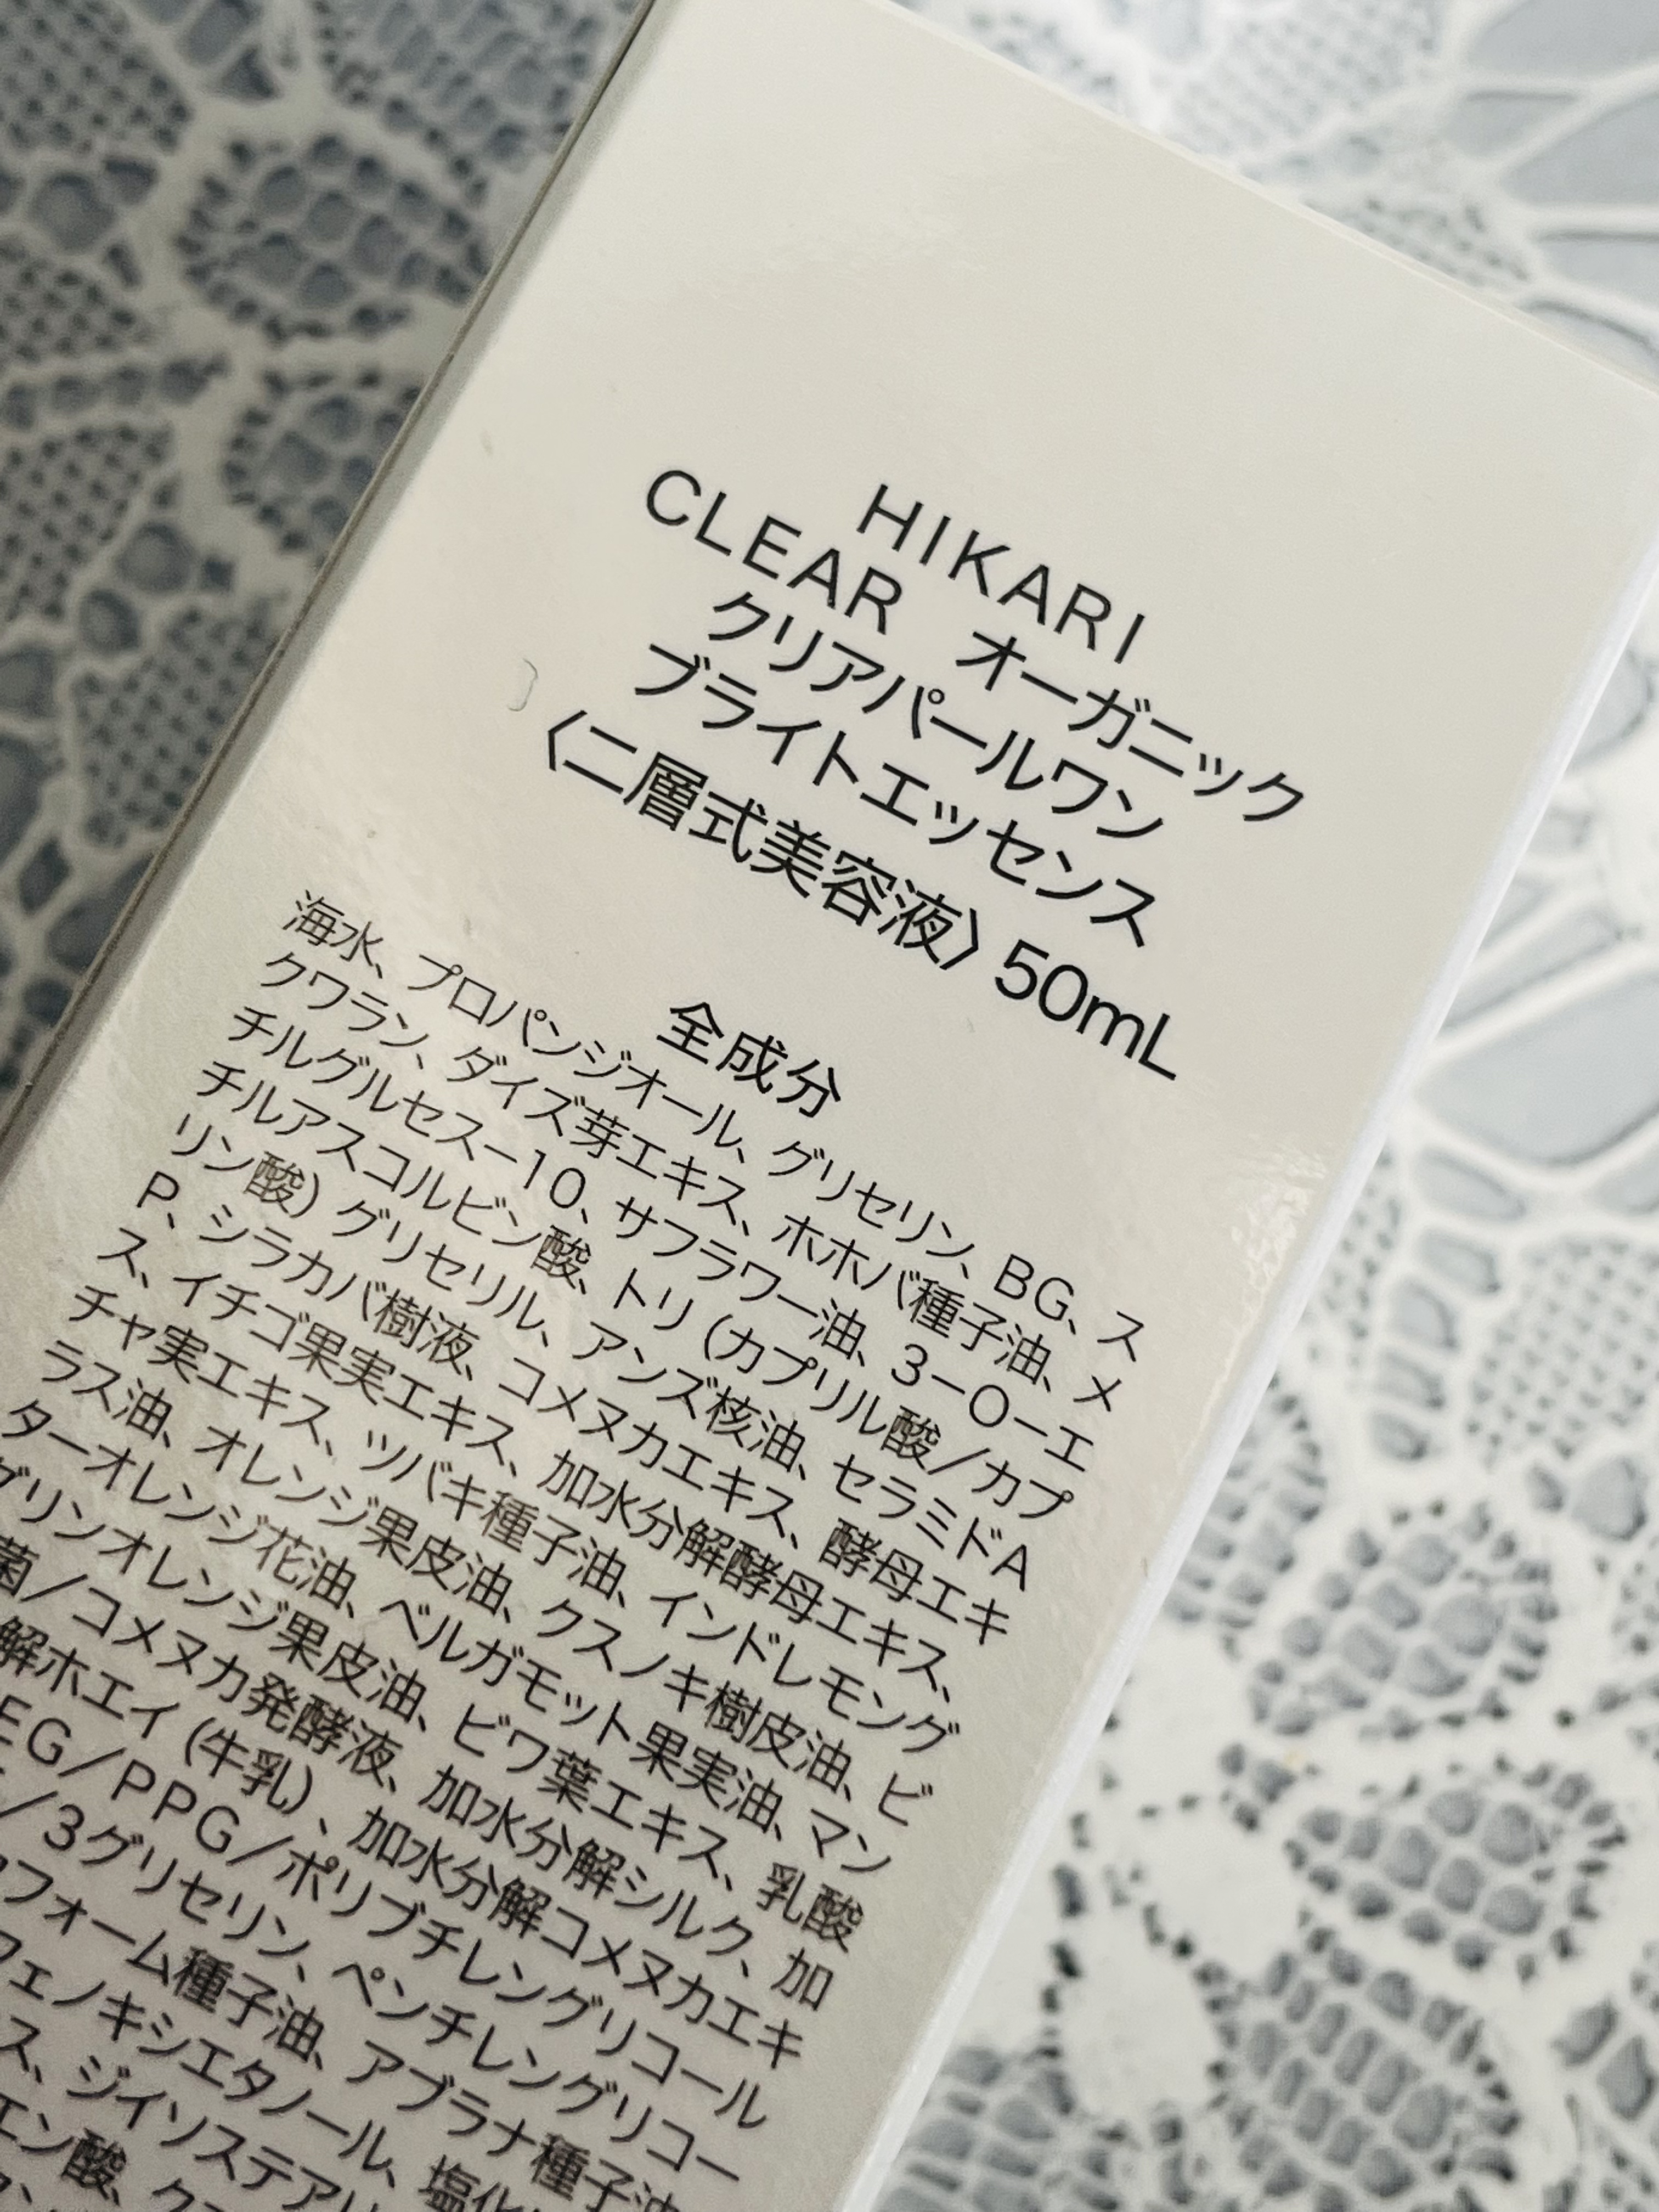 HIKARI
CLEAR オーガニック
クリアパールワン
ブライトエッセンス
〈二層式美容液〉50mL
全成分
海水、プロパンジオール、グリセリン、BG、ス
クワラン、ダイズ芽エキス、ホホバ種子油、メ
チルグルセスー10、サフラワー油、3ーOーエ
チルアスコルビン酸、トリ(カプリル酸/カプ
リン酸)グリセリル、アンズ核油、セラミドA
P、シラカバ樹液、コメヌカエキス、酵母エキ
ス、イチゴ果実エキス、加水分解酵母エキス、
チャ実エキス、ツバキ種子油、インドレモング
ラス油、オレンジ果皮油、クスノキ樹皮油、ビ
ターオレンジ花油、ベルガモット果実油、マン
グリンオレンジ果皮油、ビワ葉エキス、乳酸
菌/コメヌカ発酵液、加水分解シルク、加
解ホエイ(牛乳)、加水分解コメヌカエキ
EG/PPG/ポリブチレングリコール
/3グリセリン、ペンチレングリコー
フォーム種子油、アブラナ種子油
フェノキシエタノール、塩化
ス、ジイソステアリ
エン酸、ク